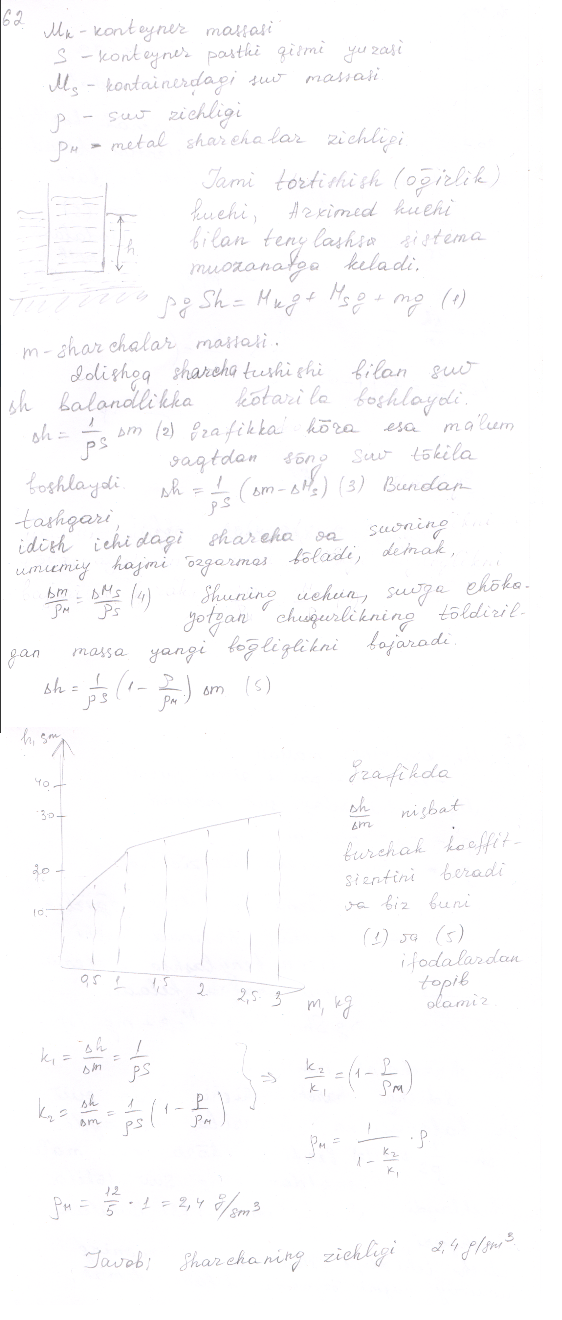 62
Mk - konteyner massasi
S - konteyner pastki qismi yuzasi
Ms - kontainerdagi suv massasi
ρ - suv zichligi
ρм - metal sharchalar zichligi
Jami tortishish (oğirlik)
kuchi, Arximed kuchi
bilan tenglashsa sistema
muozanatga keladi.
h
ρgSh = Mкg + Msg + mg (1)
m - sharchalar massasi.
Idishga sharcha tushishi bilan suv
Δh balandlikka kōtarila boshlaydi.
Δh = 1/ρS Δm (2) Grafikka kōra esa ma'lum
vaqtdan sōng suv tōkila
boshlaydi. Δh = 1/ρS (Δm - ΔMs) (3) Bundan
tashqari,
idish ichidagi sharcha va suvning
umumiy hajmi ōzgarmas bōladi, demak,
Δm/ρм = ΔMs/ρs (4) Shuning uchun, suvga chōka-
yotgan chuqurlikning tōldiril-
gan massa yangi boğliqlikni bajaradi.
Δh = 1/ρS (1 - ρ/ρм) Δm (5)
h, sm
40
30
20
10
0,5 1 1,5 2 2,5 3 m, kg
Grafikda
Δh/Δm nisbat
burchak koeffit-
sientini beradi
va biz buni
(1) va (5)
ifodalardan
topib
olamiz
k1 = Δh/Δm = 1/ρS
k2 = Δh/Δm = 1/ρS (1 - ρ/ρм)
⇒ k2/k1 = (1 - ρ/ρм)
ρм = 1/(1 - k2/k1) · ρ
ρм = 12/5 · 1 = 2,4 g/sm³
Javob: Sharchaning zichligi 2,4 g/sm³